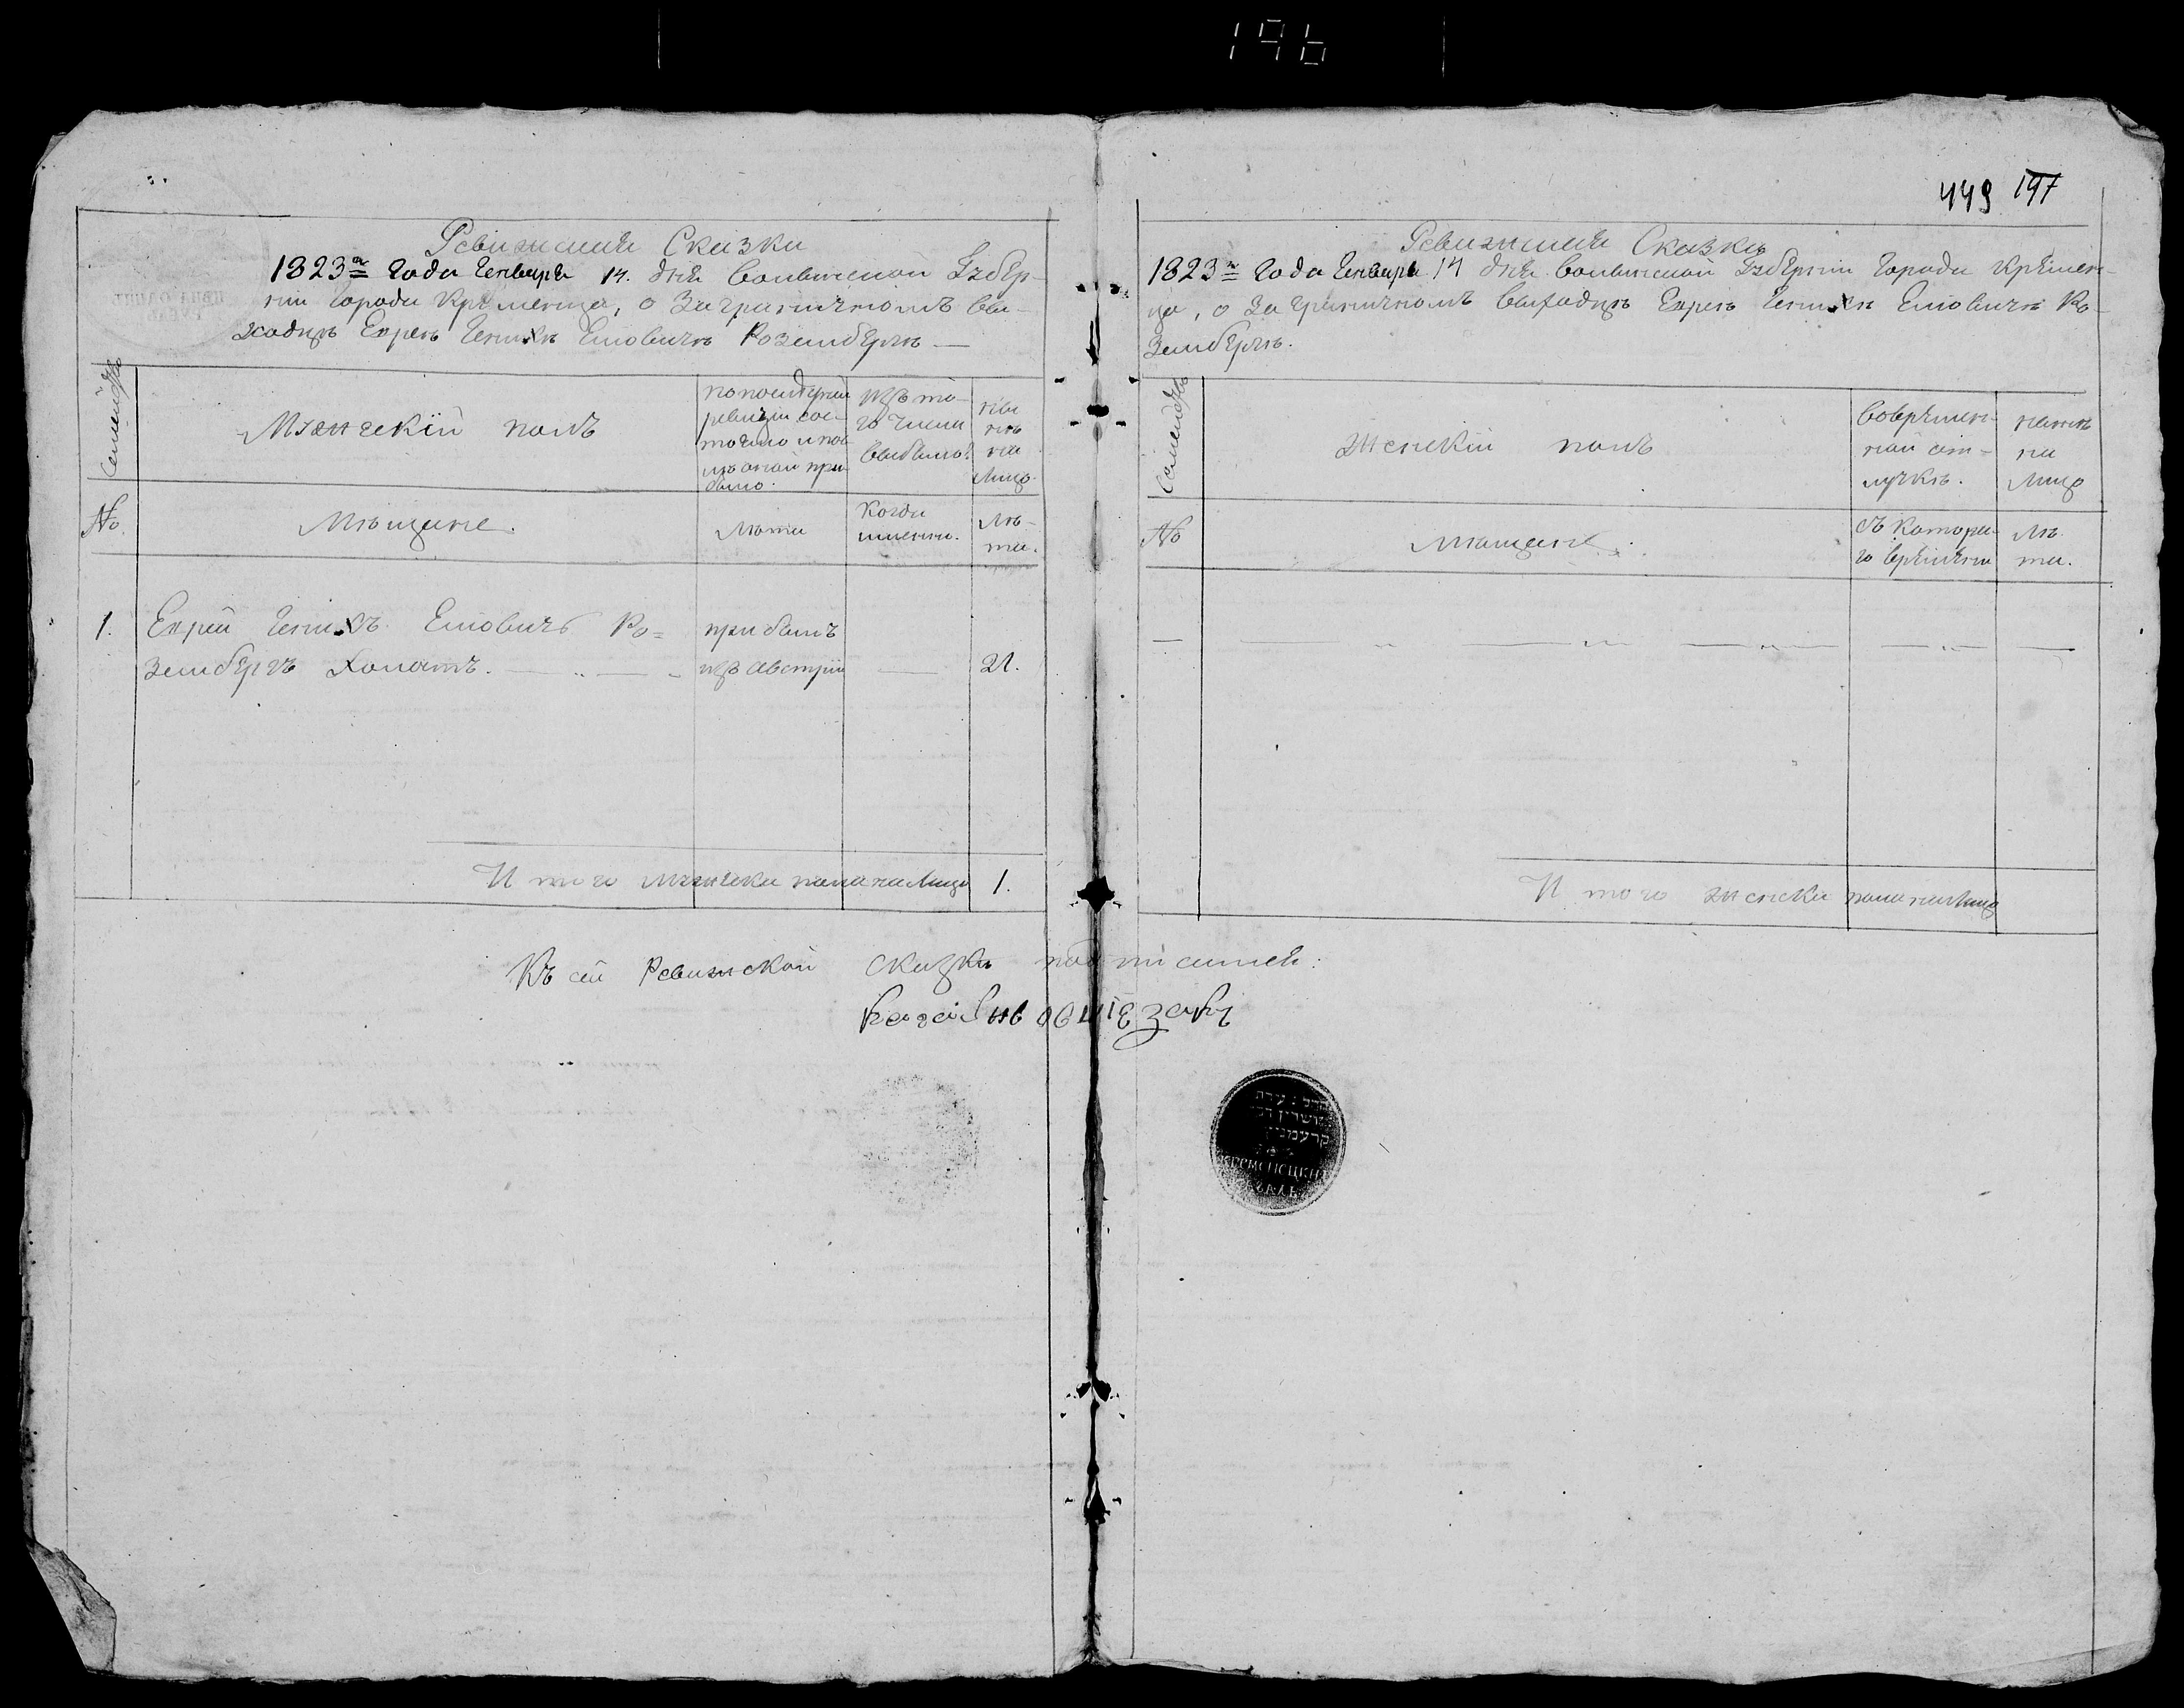 196
449 197
Ревизская Сказка
1823го Года Генваря 14. дня Волынской Губер-
нии Города Кременца, о Заграничномъ вы-
ходцѣ Евреѣ Геншлѣ Елиовичѣ Розембергѣ —
Семейства
Мужеский полъ
по последней
ревизіи сос-
тояло и пос-
лѣ оной при-
было.
изъ то-
го числа
выбыло.
ны
нѣ
на
Лицо.
№
Мѣщане.
Лѣта
Когда
именно.
Лѣ-
та.
1. Еврей Ро=
прибылъ
земберхъ Холостъ.
изъ Австріи
21.
И того Мужеска пола на Лицо 1.
Ревизская Сказка
1823го Года Генваря 14 дня Волынской Губерніи Города Кремен-
ца, о Заграничномъ Выходцѣ Евреѣ Елиовичѣ Ро-
Зембергѣ.
Семейства
Женский полъ
Вовремен-
ной от-
лучкѣ.
нынѣ
на
Лицо
№
Мѣщане.
съ которо-
го времени
Лѣ
та.
И того женска пола на Лицо
Къ сей Ревизской сказкѣ подписался:
קרעמניץ
КРЕМЕНЕЦКИЙ
КАГАЛЪ